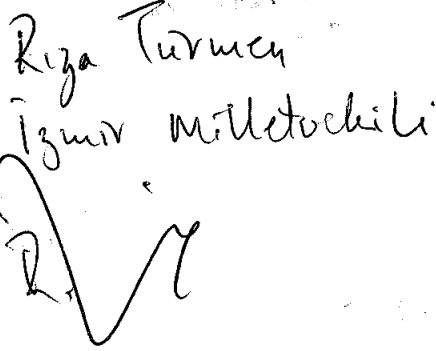 Rıza Türmen
İzmir Milletvekili